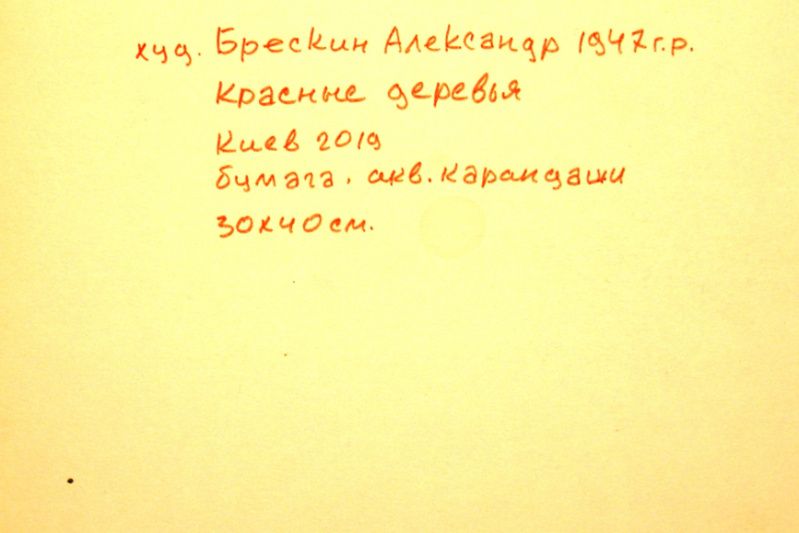 худ. Брескин Александр 1947г.р.
Красные деревья
Киев 2019
бумага. акв. карандаши
30х40см.